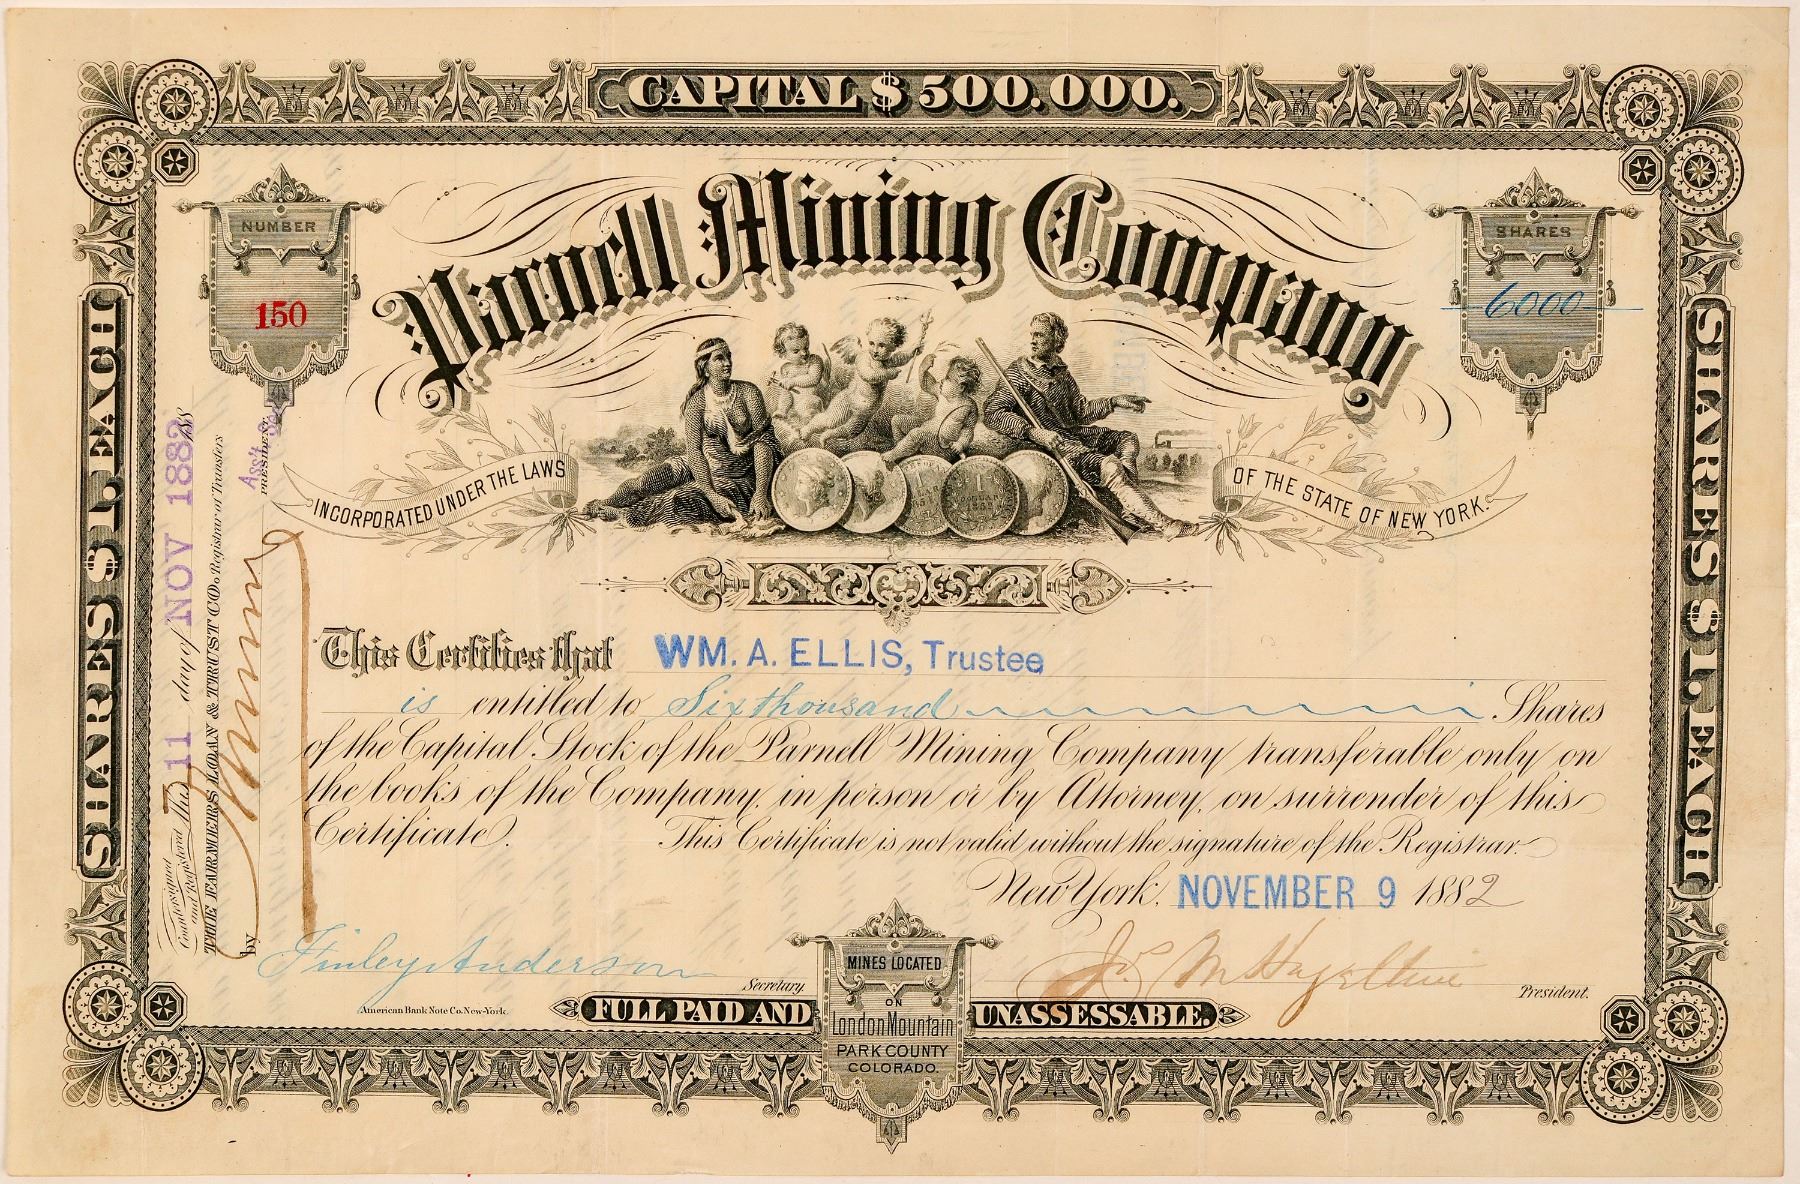 CAPITAL $500.000.
NUMBER
150
Parnell Mining Company
SHARES
6000
INCORPORATED UNDER THE LAWS
OF THE STATE OF NEW YORK.
SHARES $1 EACH
SHARES $1 EACH
This Certifies that WM. A. ELLIS, Trustee
is entitled to Six thousand Shares
of the Capital Stock of the Parnell Mining Company transferable only on
the books of the Company, in person or by Attorney, on surrender of this
Certificate. This Certificate is not valid without the signature of the Registrar.
New York, NOVEMBER 9 1882
Finley Anderson Secretary
Jos M Hazeltine President.
American Bank Note Co. New-York.
FULL PAID AND UNASSESSABLE.
MINES LOCATED
ON
London Mountain
PARK COUNTY
COLORADO.
Countersigned
and Registered this 11 day of NOV 1882 188
THE FARMERS LOAN & TRUST CO. Registrar of Transfers
by
PRESIDENT